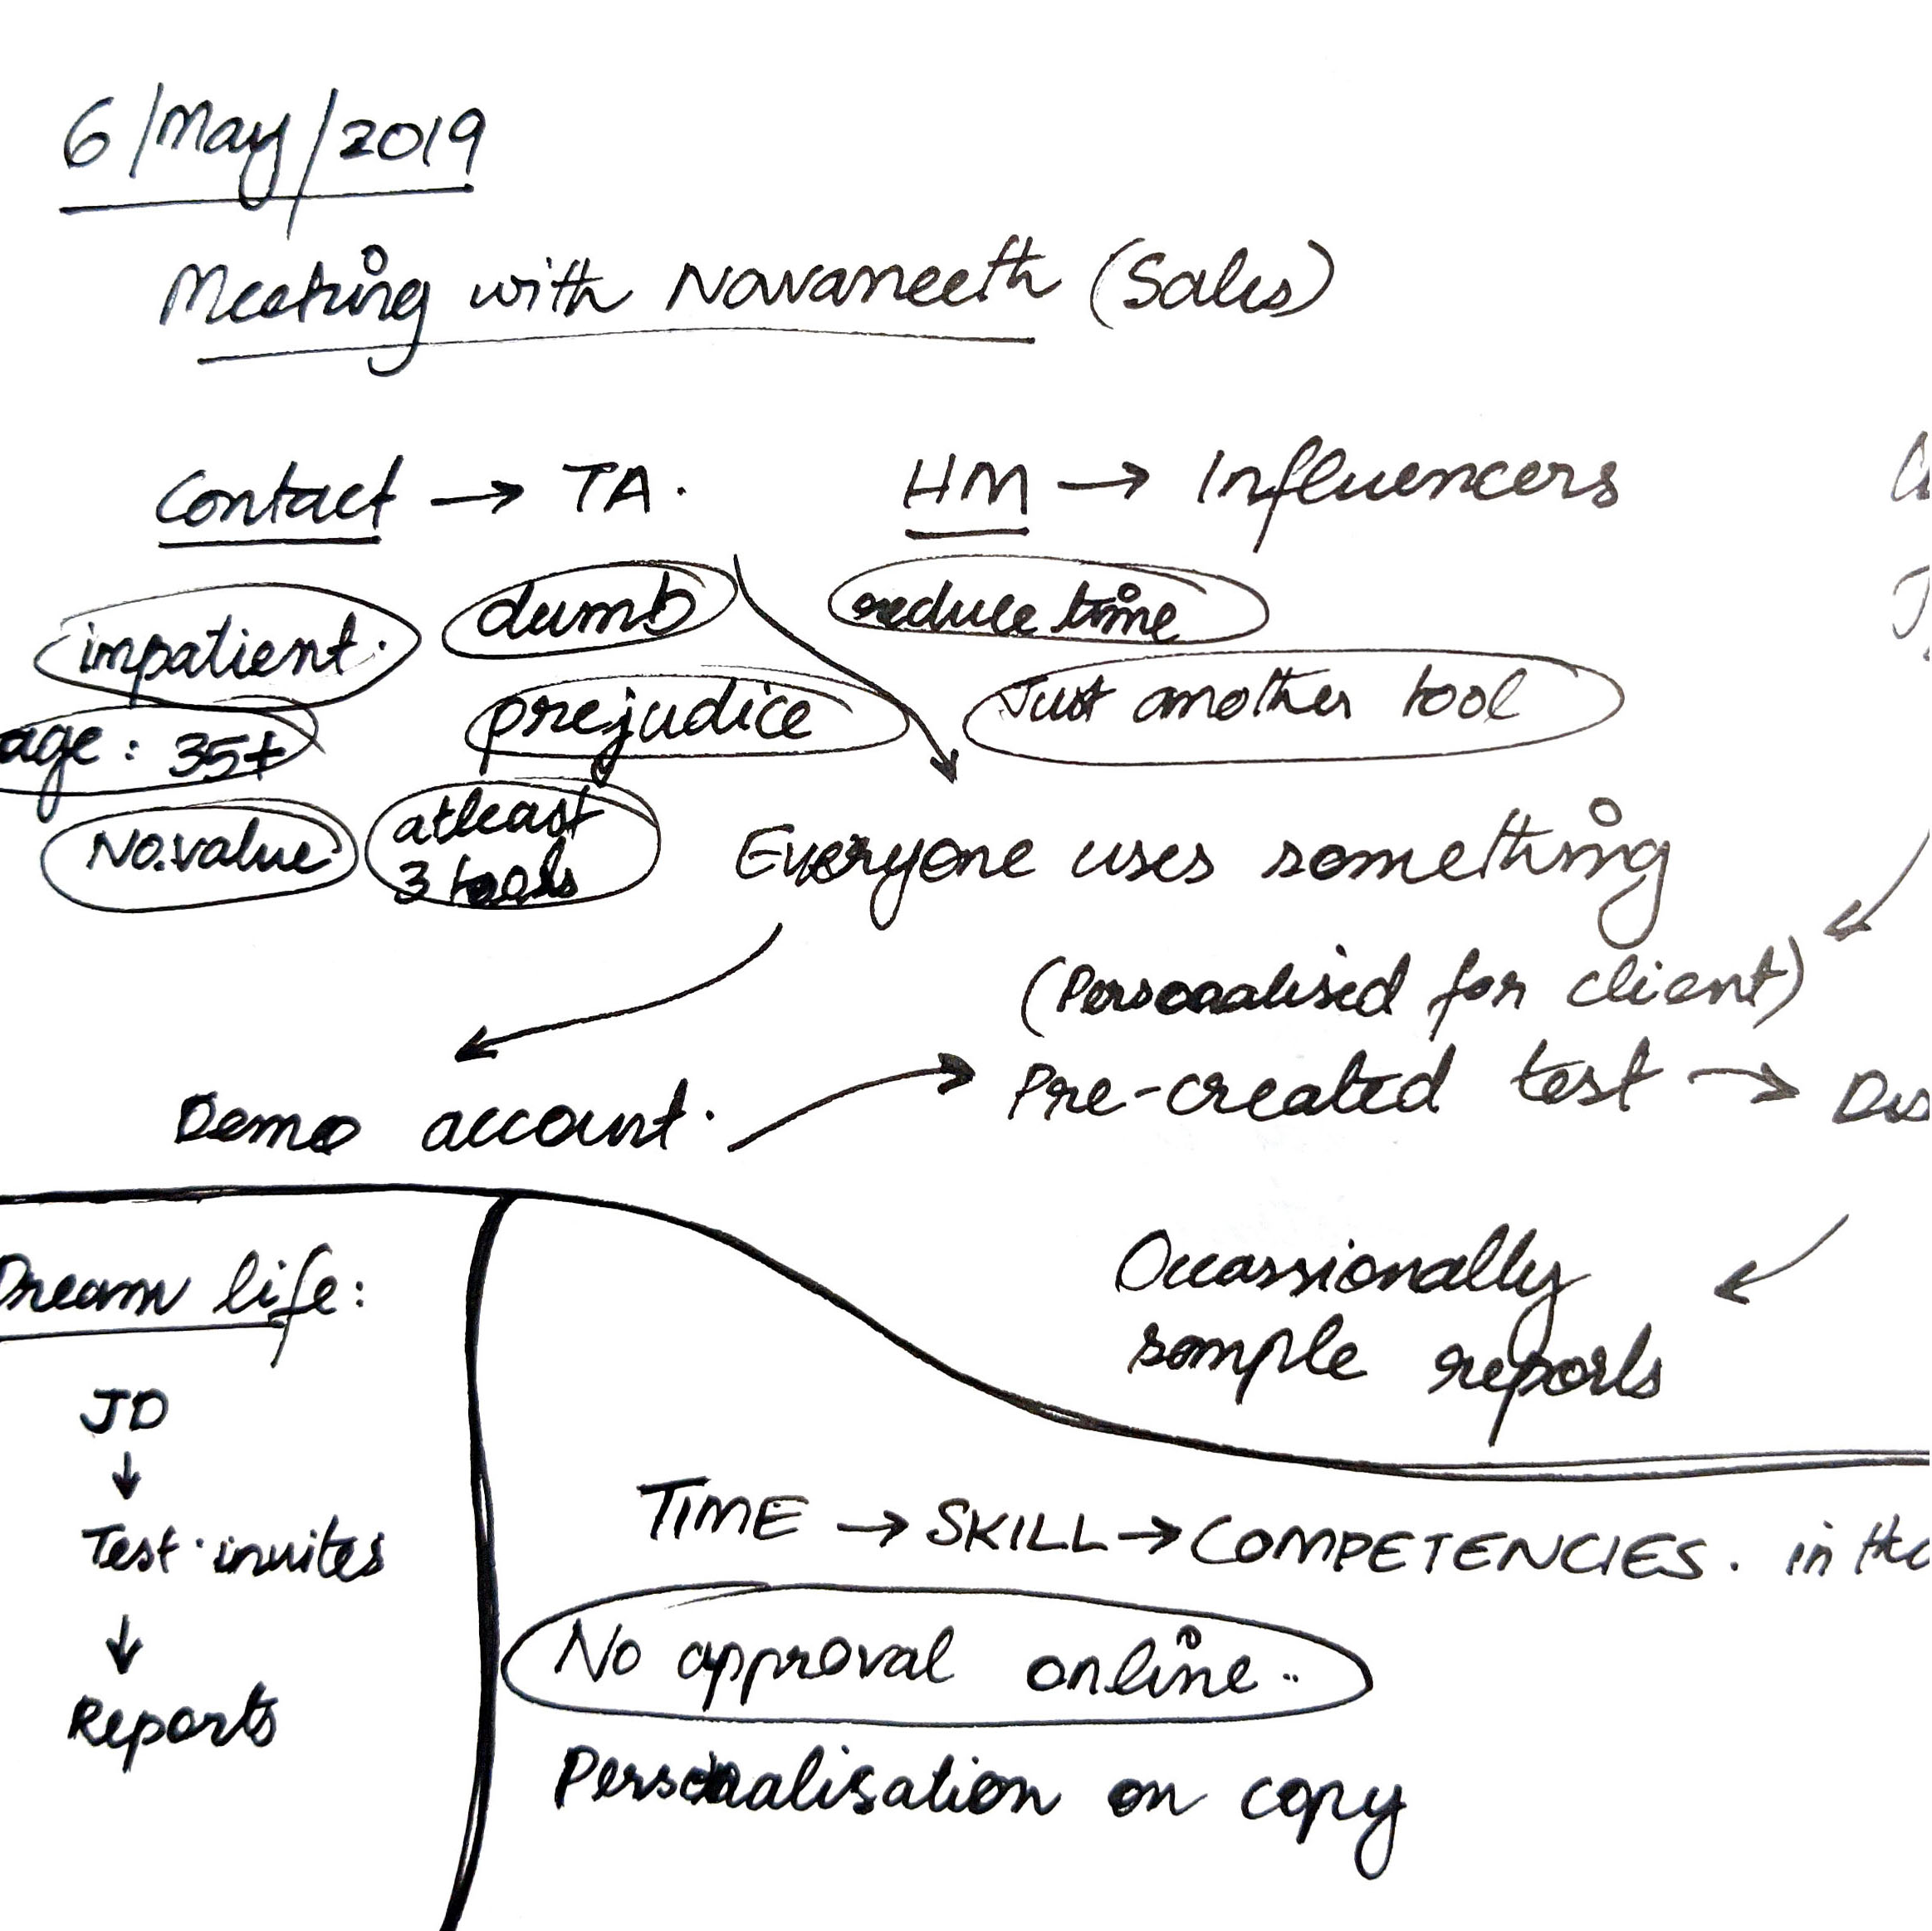 6/May/2019
Meeting with Navaneeth (Sales)
Contact → TA.
HM → Influencers
impatient.
dumb
reduce time
age: 35+
prejudice
Just another tool
No.value
atleast
3 tools
Everyone uses something
(Personalised for client)
Demo account.
Pre-created test →
Dream life:
Occassionally
sample reports
JD
↓
Test invites
↓
Reports
TIME → SKILL → COMPETENCIES. in
No approval online..
Personalisation on copy